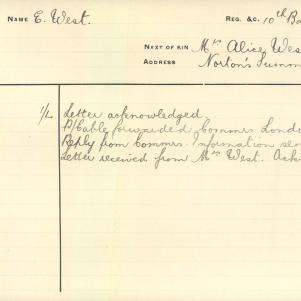 NAME E. West. REG. &C. 10th Ba
NEXT OF KIN Mrs Alice Wes
ADDRESS Norton's Summ
1/2 Letter acknowledged.
P/Cable forwarded Commrs. Londo
Reply from Commrs. Information sen
Letter received from Mrs West. Ack